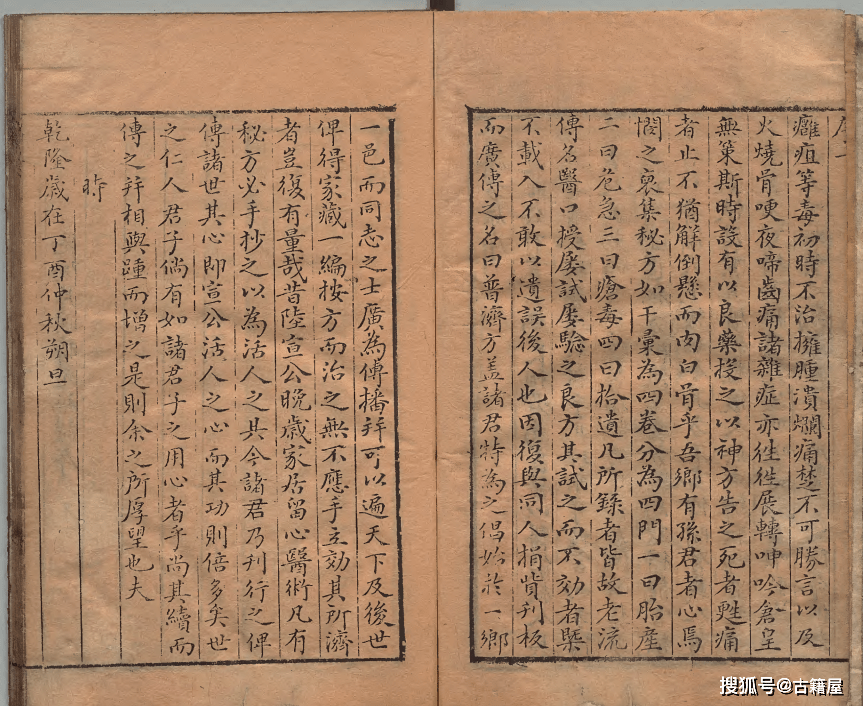 癰疽等毒初時不治擁腫潰爛痛楚不可勝言以及
火燒骨哽夜啼齒痛諸雜症亦往往展轉呻吟倉皇
無策斯時設有以良藥投之以神方告之死者甦痛
者止不猶解倒懸而肉白骨乎吾鄉有孫君者心焉
憫之裒集秘方如干彙為四卷分為四門一曰胎產
二曰危急三曰瘡毒四曰拾遺凡所錄者皆故老流
傳名醫口授屡試屡驗之良方其試之而不効者槩
不載入不敢以遺誤後人也因復與同人捐貲刋板
而廣傳之名曰普濟方盖諸君特為之倡始於一鄉
一邑而同志之士廣為傳播并可以遍天下及後世
俾得家藏一編按方而治之無不應手立効其所濟
者豈復有量哉昔陸宣公晚歲家居留心醫術凡有
秘方必手抄之以為活人之具今諸君乃刋行之俾
傳諸世其心即宣公活人之心而其功則倍多矣世
之仁人君子倘有如諸君子之用心者乎尚其續而
傳之并相與踵而增之是則余之所厚望也夫
時
乾隆歲在丁酉仲秋朔旦
搜狐号@古籍屋